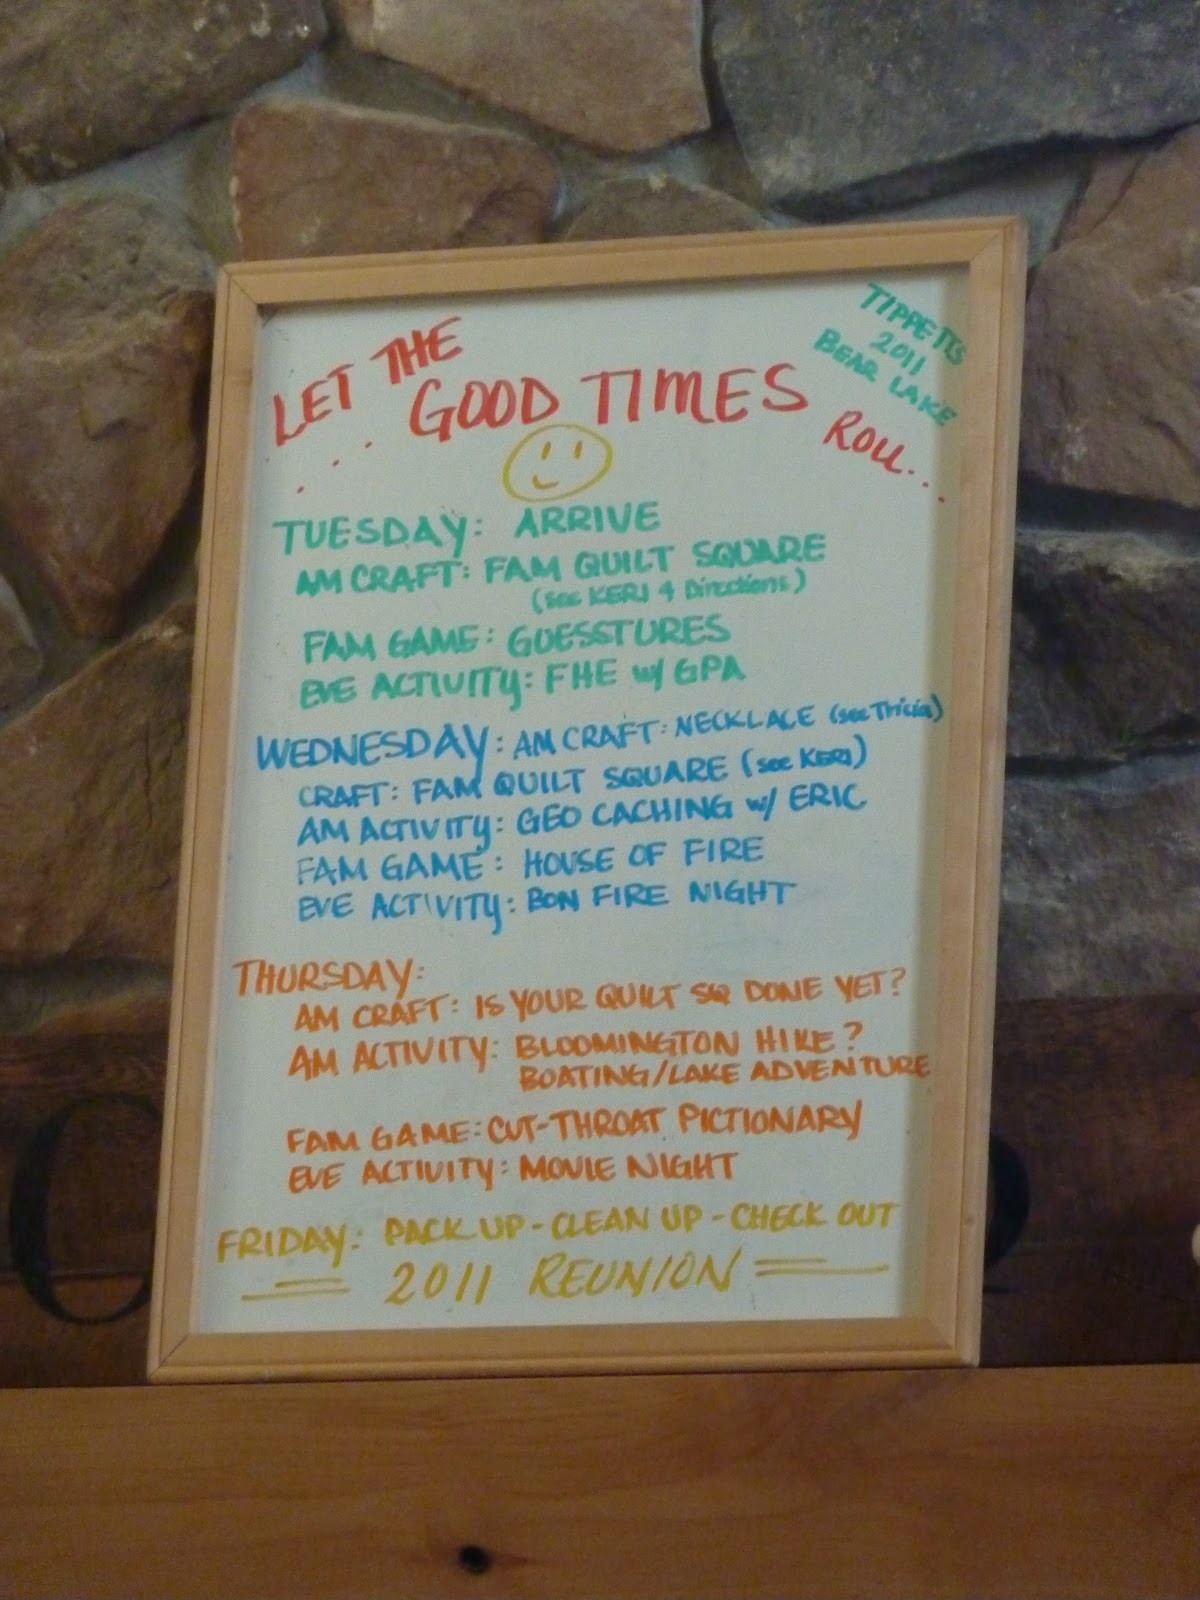 LET THE
... GOOD TIMES
ROLL...
TIPPETTS
2011
BEAR LAKE
TUESDAY: ARRIVE
AM CRAFT: FAM QUILT SQUARE
(see KERI 4 Directions)
FAM GAME: GUESSTURES
EVE ACTIVITY: FHE w/ GPA
WEDNESDAY: AM CRAFT: NECKLACE (see Tricia)
CRAFT: FAM QUILT SQUARE (see KERI)
AM ACTIVITY: GEO CACHING w/ ERIC
FAM GAME: HOUSE OF FIRE
EVE ACTIVITY: BON FIRE NIGHT
THURSDAY:
AM CRAFT: IS YOUR QUILT SQ DONE YET?
AM ACTIVITY: BLOOMINGTON HIKE?
BOATING/LAKE ADVENTURE
FAM GAME: CUT-THROAT PICTIONARY
EVE ACTIVITY: MOVIE NIGHT
FRIDAY: PACK UP - CLEAN UP - CHECK OUT
2011 REUNION